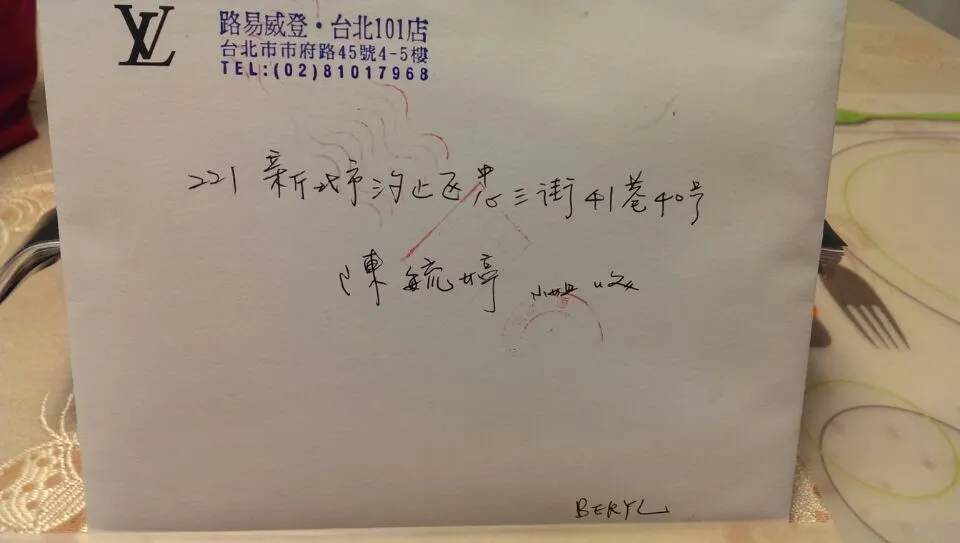 LV
路易威登·台北101店
台北市市府路45號4-5樓
TEL:(02)81017968
221 新北市汐止区忠三街41巷40号
陳毓婷 小姐 收
BERYL